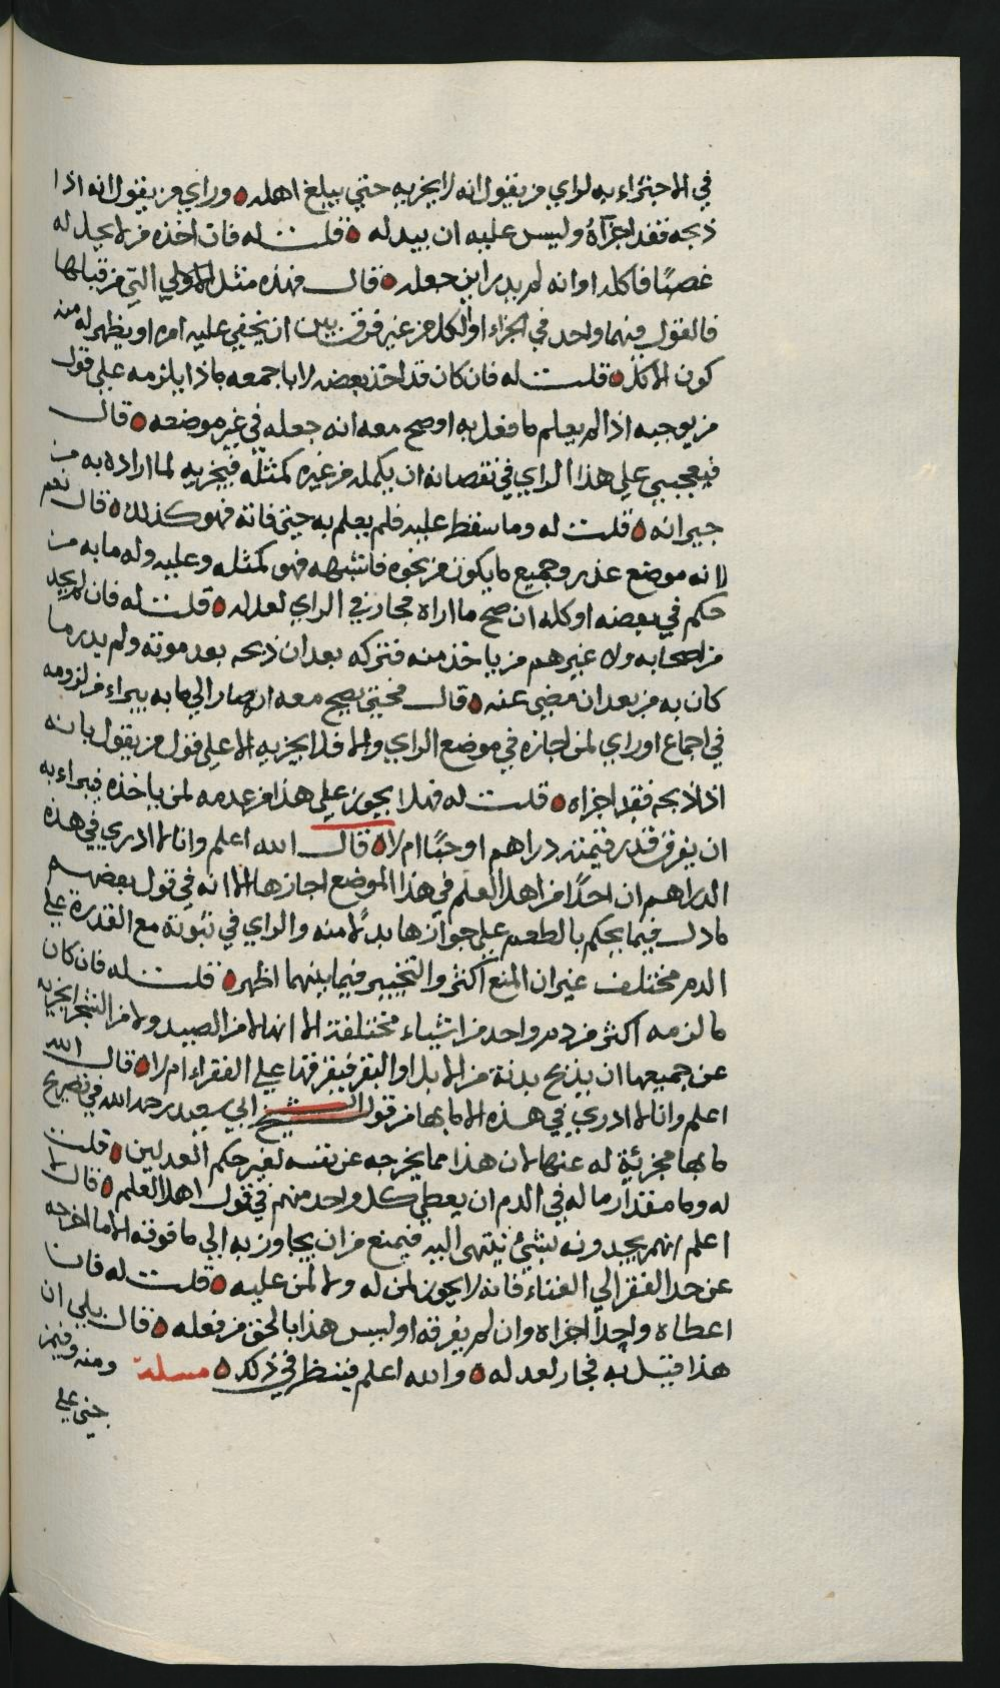 في الاجتزاء به لراي من يقول انه لا يجزيه حتي يبلغ اهله وراي من يقول انه اذا
ذبحه فقد اجزاه وليس عليه ان يبدله قلت له فان اخذه من لا يحل له
غصبًا فاكله او انه لم يدر اين جعله قال فهذه مثل الاولي التي من قبلها
فالقول فيهما واحد في الجزاء او الكل من غير فرق بين ان يخفي عليه امره او يظهر له منه
كون الاكل قلت له فان كان قد اخذ بعضه لا باجمعه ماذا يلزمه علي قول
من يوجبه اذا لم يعلم ما فعل به او صح معه انه جعله في غير موضعه قال
فيعجبني علي هذا الراي في نقصانه ان يكمله من غيره كمثله فيجزيه لما اراده به من
جبرانه قلت له وما سقط عليه فلم يعلم به حتي فاته فهو كذلك قال نعم
لانه موضع عذر وجميع ما يكون من نحوه فاشبهه فهو كمثله وعليه وله ما به من
حكم في بعضه او كله ان صح ما اراه فجاز في الراي لعدله قلت له فان لم يجد
من اصحابه ولا غيرهم من ياخذ منه فتركه بعد ان ذبحه بعد موته ولم يدر ما
كان به من بعد ان مضي عنه قال فحتي يصح معه انه صار الي ما به يبراء من لزومه
في اجماع او راي لمن اجازه في موضع الراي والا فلا يجزيه الا علي قول من يقول بانه
اذا ذبحه فقد اجزاه قلت له فهل يجوز علي هذا من عدمه لمن ياخذه فيبراء به
ان يفرق قدر قيمته دراهم او حبًا ام لا قال الله اعلم وانا لا ادري في هذه
الدراهم ان احدًا من اهل العلم في هذا الموضع اجازها الا انه في قول بعضهم
ما دل فيما يحكم بالطعم علي جوازها بدلًا منه والراي في ثبوته مع القدرة علي
الدم مختلف غير ان المنع اكثر والتخيير فيما بينهما اظهر قلت له فان كان
ما لزمه اكثر من دم واحد من اشياء مختلفة الا انها لا من الصيد ولا من الشجر ايجزيه
عن جميعها ان يذبح بدنة من الابل او البقر فيفرقها علي الفقراء ام لا قال الله
اعلم وانا لا ادري في هذه الا ما بها من قول الشيخ ابي سعيد رحمه الله في تصريح
ما بها مجزئية له عنها لان هذا مما يخرجه عن نفسه لغير حكم العدلين قلت
له وما مقدار ما له في الدم ان يعطي كل واحد منهم في قول اهل العلم قال لا
اعلم انهم يحدونه بشيء ينتهي اليه فيمنع من ان يجاوز به الي ما فوقه الا ما اخرجه
عن حد الفقر الي الغناء فانه لا يجوز لمن له ولا لمن عليه قلت له فان
اعطاه واحدًا اجزاه وان لم يفرقه او ليس هذا بالحق من فعله قال بلي ان
هذا قيل به فجاز لعدله والله اعلم فينظر في ذلك مسلة ومنه وفيمن
جني علي